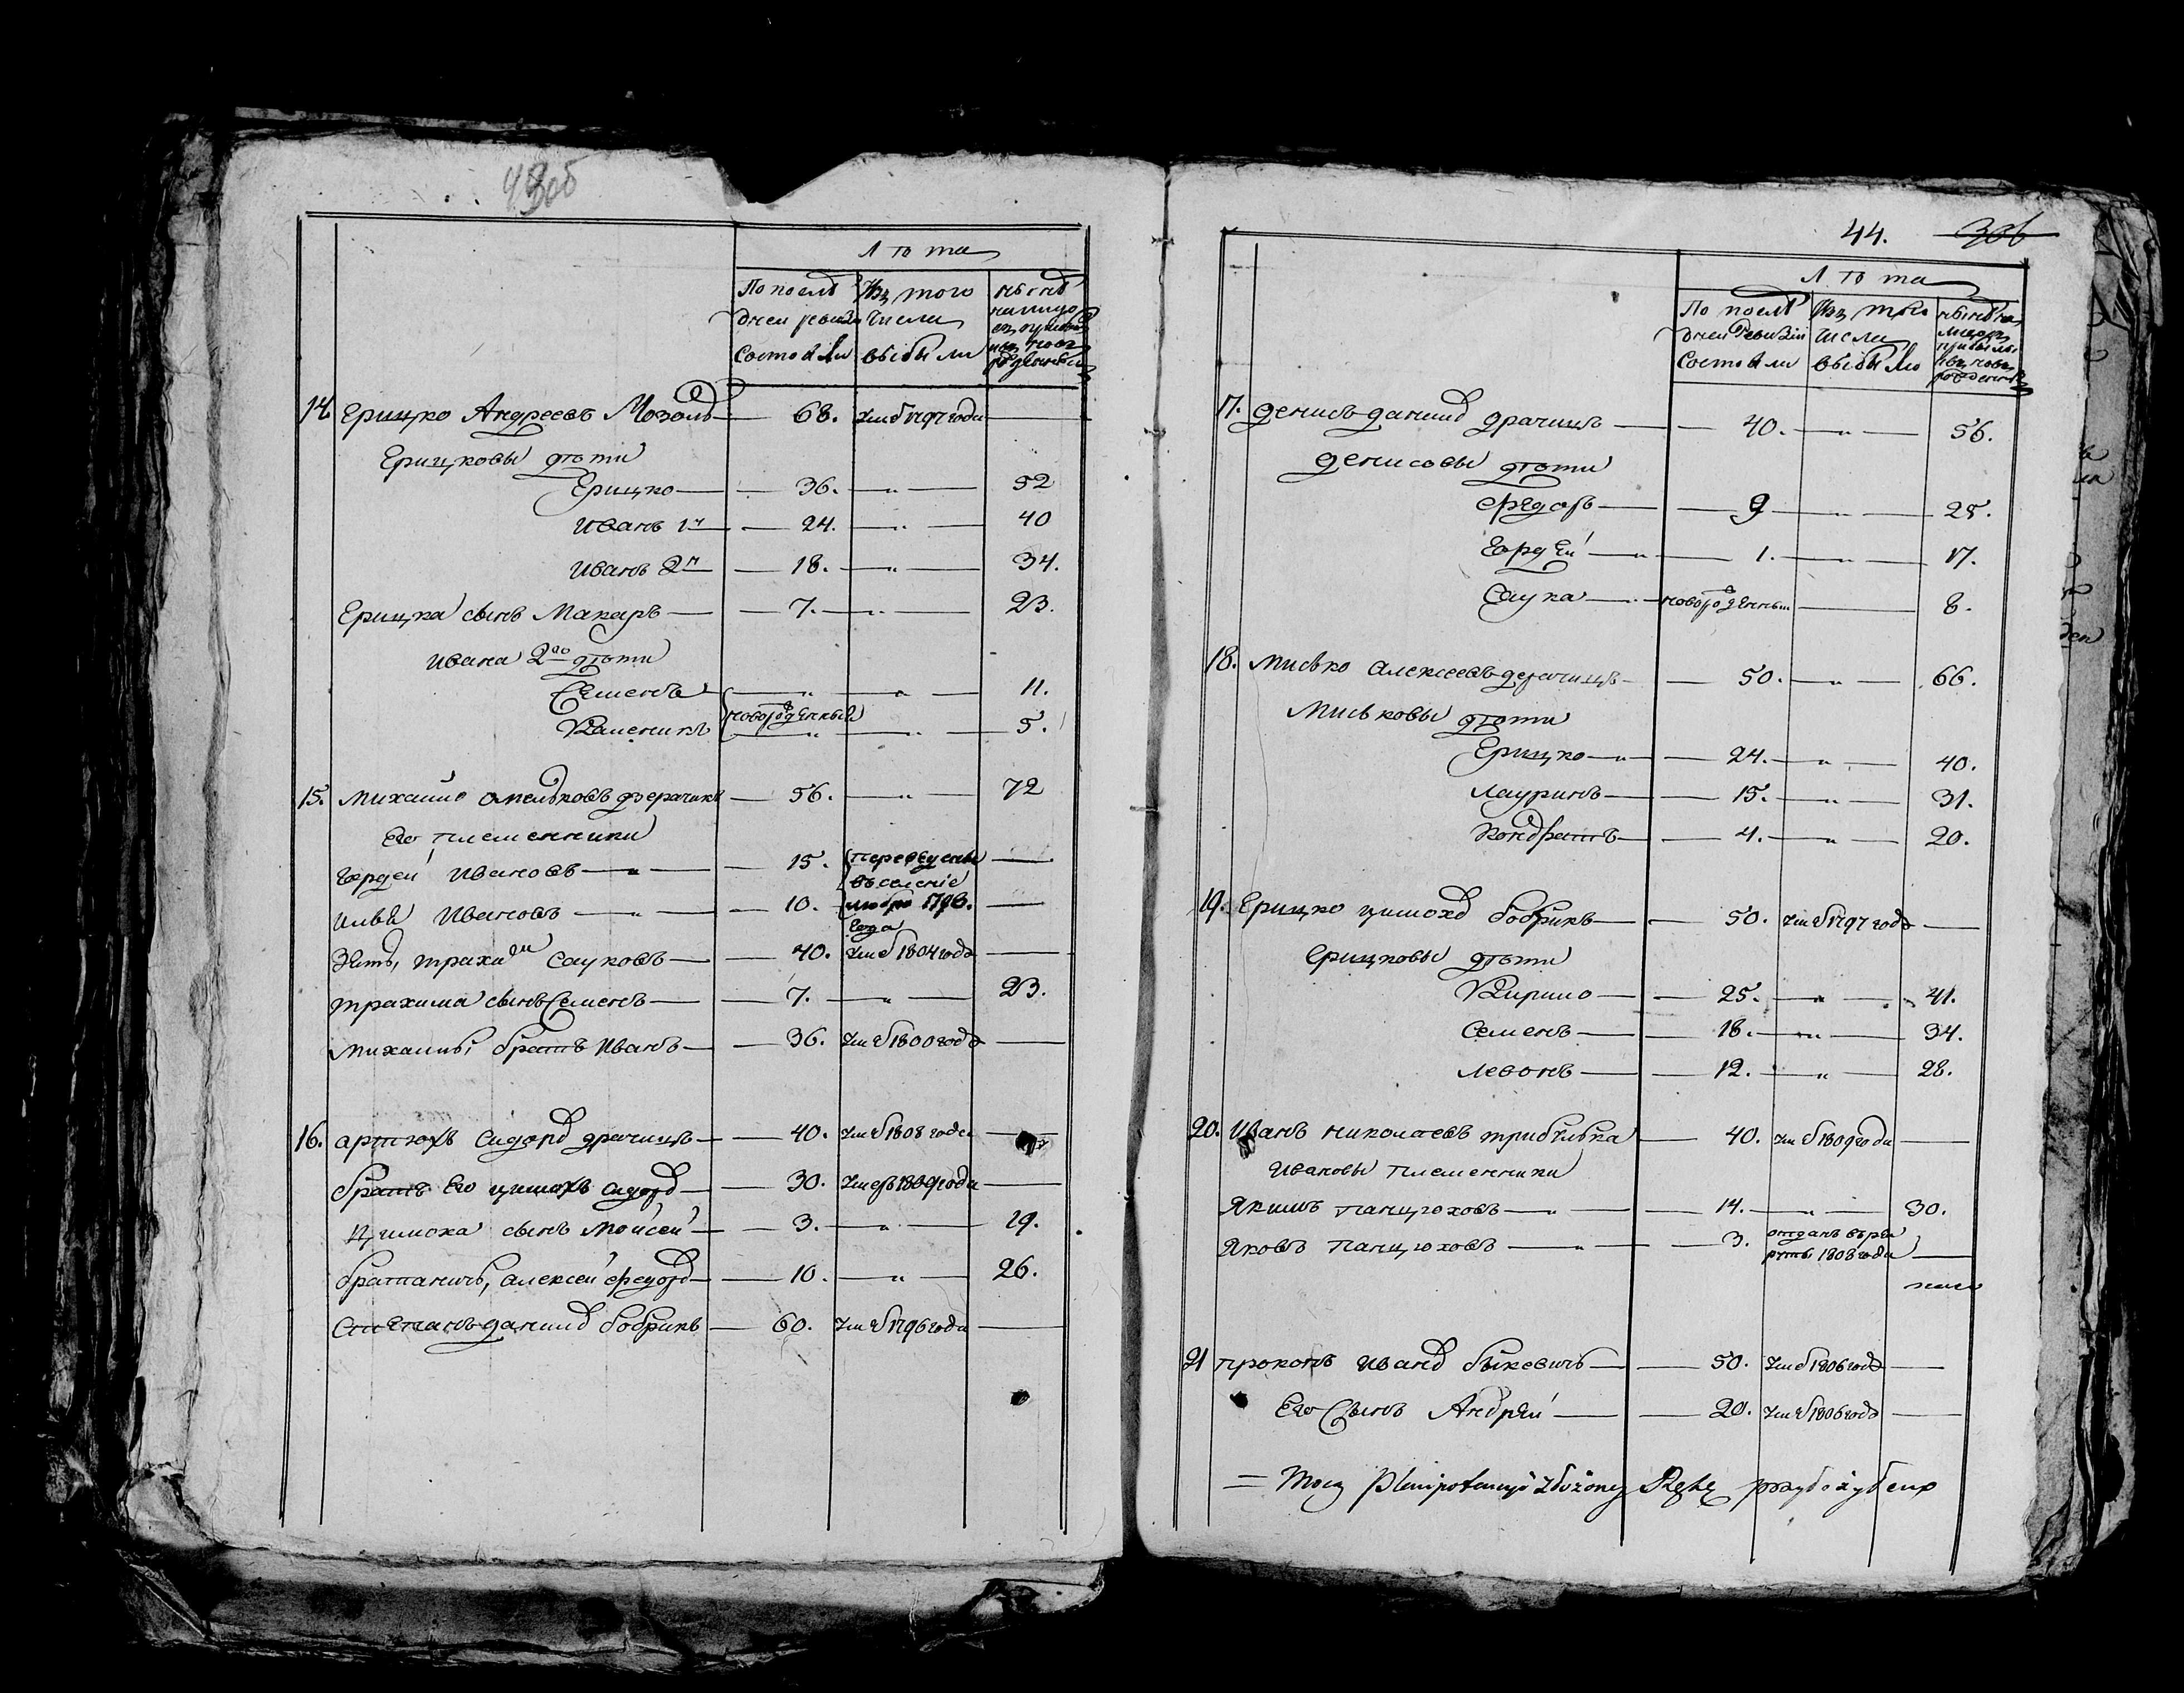 43об
Лѣта
По послѣ
дней ревизіи
состояли
Изъ того
числа
выбыли
нынѣ
налицо
съ прибыл
изъ нов
рожденны
14. Ерицко Андреевъ Мозоль — 68. — умеръ 1797 года —
Ерицковы дѣти
Ерицко — 36. — „ — 52
Иванъ 1й — 24. — „ — 40
Иванъ 2й — 18. — „ — 34.
Ерицка сынъ Макаръ — 7. — „ — 23.
Ивана 2го дѣти
Семенъ — „ — „ — 11.
новорожденный
Каленикъ — „ — „ — 5.
15. Михайло Омельковъ дзерачицъ — 56. — „ — 72
Его племенники
Гордей Ивановъ — „ — 15. переведены —
въ селеніе
Илья Ивановъ — „ — 10. 1796. —
года
Зять, Трахимъ Сауковъ — 40. умеръ 1804 года —
Трахима сынъ Семенъ — 7. — „ — 23.
Михайлы братъ Иванъ — 36. умеръ 1800 года —
16. Артюхъ Сидоровъ драчицъ — 40. умеръ 1808 года —
братъ Его Цимохъ Сидоровъ — 30. умеръ 1809 года —
Цимоха сынъ Мойсей — 3. — „ — 19.
братаничъ, Алексей Федоровъ — 10. — „ — 26.
Степанъ даниловъ бобрикъ — 60. умеръ 1796 года —
44. 306
Лѣта
По послѣ
дней Ревизіи
состояли
Изъ того
числа
выбыло
нынѣ на
лицо съ
прибылы
изъ новъ
рожденны
17. Денисъ даниловъ драчицъ — 40. — „ — 56.
Денисовы дѣти
Федоръ — 9 — „ — 25.
Гордѣй — „ — 1. — „ — 17.
Саука — „ — новорожденный — 8.
18. Мисько Алексеевъ дерачицъ — 50. — „ — 66.
Миськовы дѣти
Ерицко — „ — 24. — „ — 40.
Лауринъ — 15. — „ — 31.
Кондратъ — 4. — „ — 20.
19. Ерицко Цимоховъ бобрикъ — 50. умеръ 1797 года —
Ерицковы дѣти
Кирило — 25. — „ — 41.
Семенъ — 18. — „ — 34.
Левонъ — 12. — „ — 28.
20. Иванъ Николаевъ — 40. умеръ 1809 года —
Ивановы племенники
Якимъ Панцюховъ — „ — 14. — „ — 30.
Яковъ Панцюховъ — „ — 3. отданъ въ рек
руты 1808 года —
21 Прокопъ Ивановъ быкевичъ — 50. умеръ 1806 года —
Его Сынъ Андрей — 20. умеръ 1806 года —
= Mocą Plenipotencyi złożoney Rękę